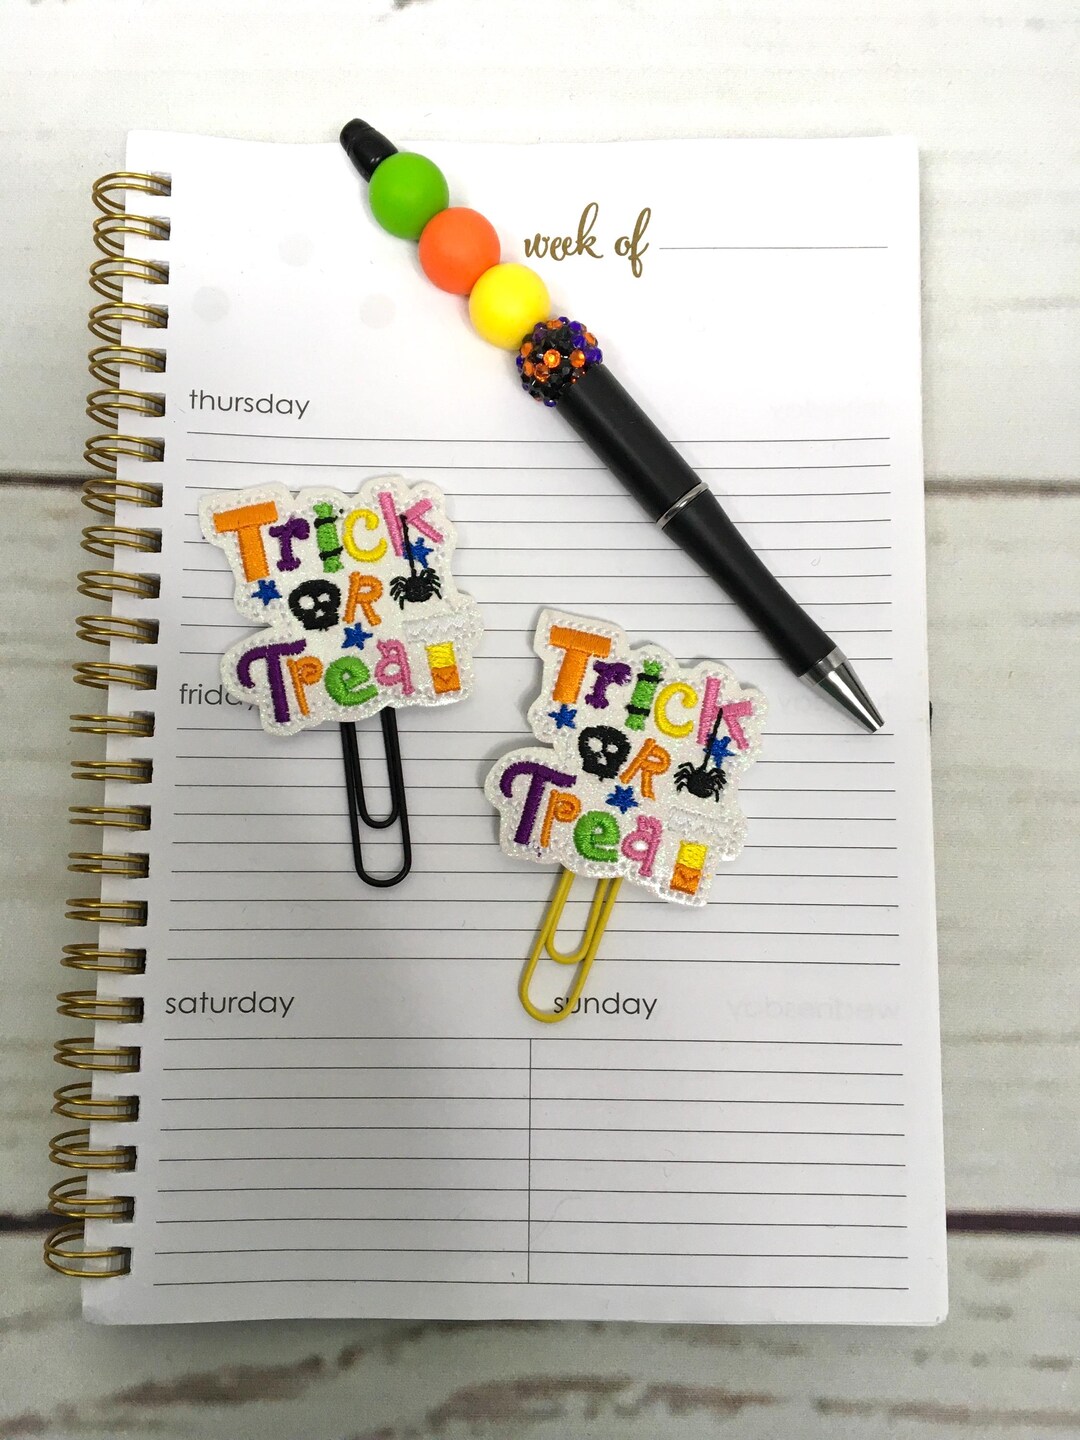 week of
thursday
Trick
OR
Treat
friday
Trick
OR
Treat
saturday
sunday
wednesday